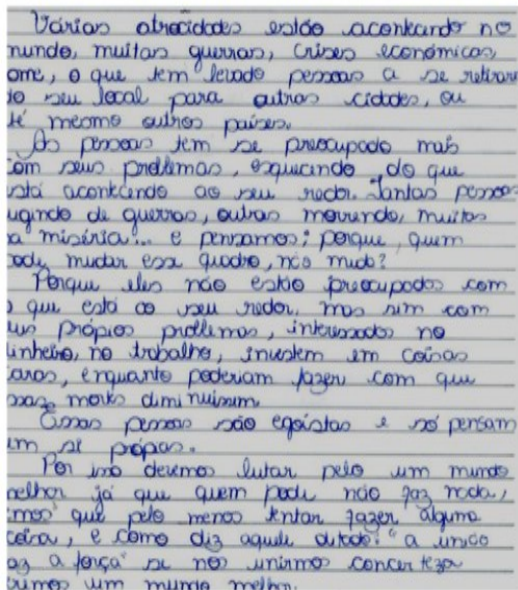 Várias atrocidades estão acontecendo no
mundo, muitas guerras, crises económicas,
ome, o que tem levado pessoas a se retirare
do seu local para outras cidades, ou
té mesmo outros países.
As pessoas tem se preocupado mais
com seus problemas, esquecendo do que
está acontecendo ao seu redor. Tantas pessoas
ugindo de guerras, outras morrendo, muitas
na miséria... e pensamos; porque, quem
pode mudar esse quadro, não muda?
Porque eles não estão preocupados com
o que está ao seu redor, mas sim com
eus própios problemas, interessados no
dinheiro, no trabalho, investem em coisas
caras, enquanto poderiam fazer com que
essas mortes diminuissem.
Essas pessoas são egoístas e só pensam
em si própas.
Por isso devemos lutar pelo um mundo
melhor já que quem pode não faz nada,
emos que pelo menos tentar fazer alguma
coisa, e como diz aquele ditado: "a união
faz a força" se nos unirmos concerteza
um mundo melhor.